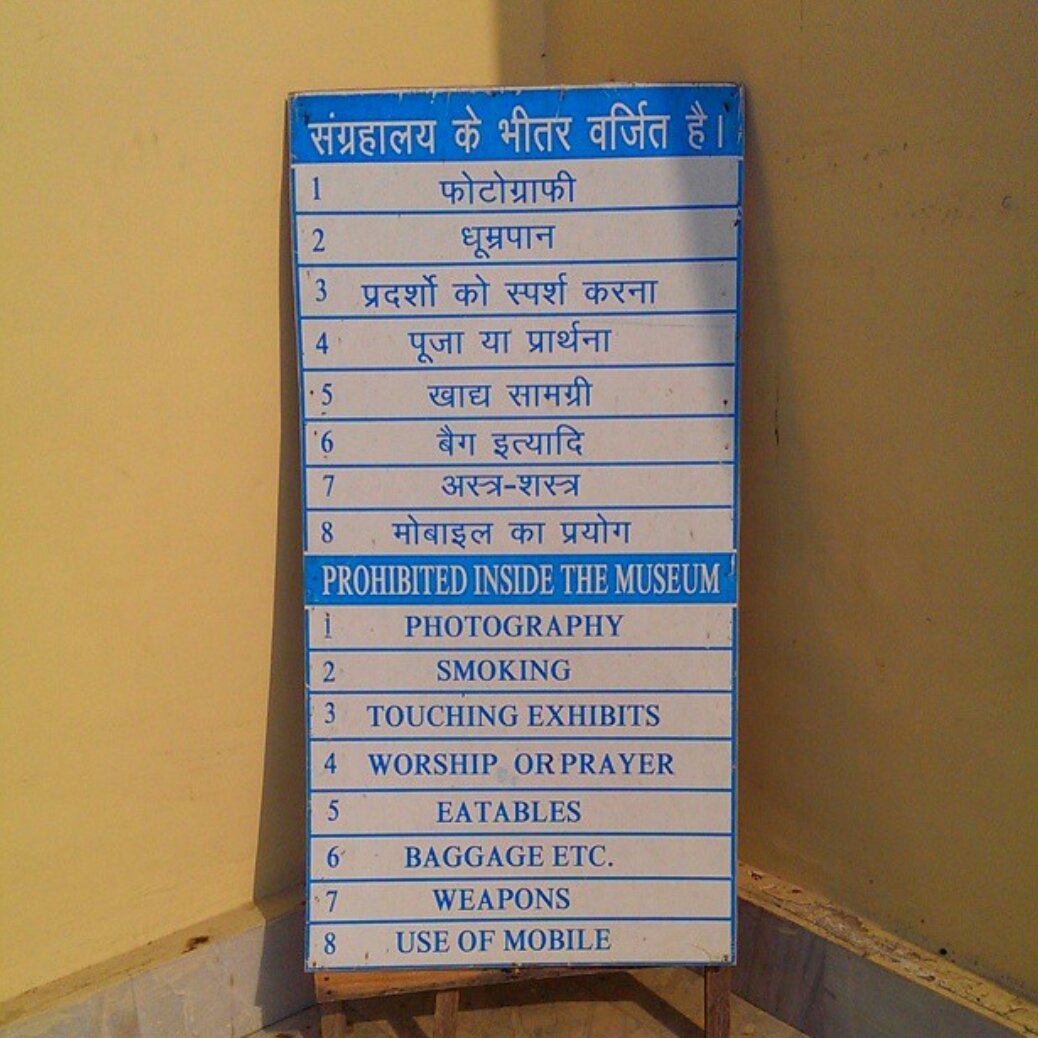 संग्रहालय के भीतर वर्जित है।
1 फोटोग्राफी
2 धूम्रपान
3 प्रदर्शो को स्पर्श करना
4 पूजा या प्रार्थना
5 खाद्य सामग्री
6 बैग इत्यादि
7 अस्त्र-शस्त्र
8 मोबाइल का प्रयोग
PROHIBITED INSIDE THE MUSEUM
1 PHOTOGRAPHY
2 SMOKING
3 TOUCHING EXHIBITS
4 WORSHIP OR PRAYER
5 EATABLES
6 BAGGAGE ETC.
7 WEAPONS
8 USE OF MOBILE